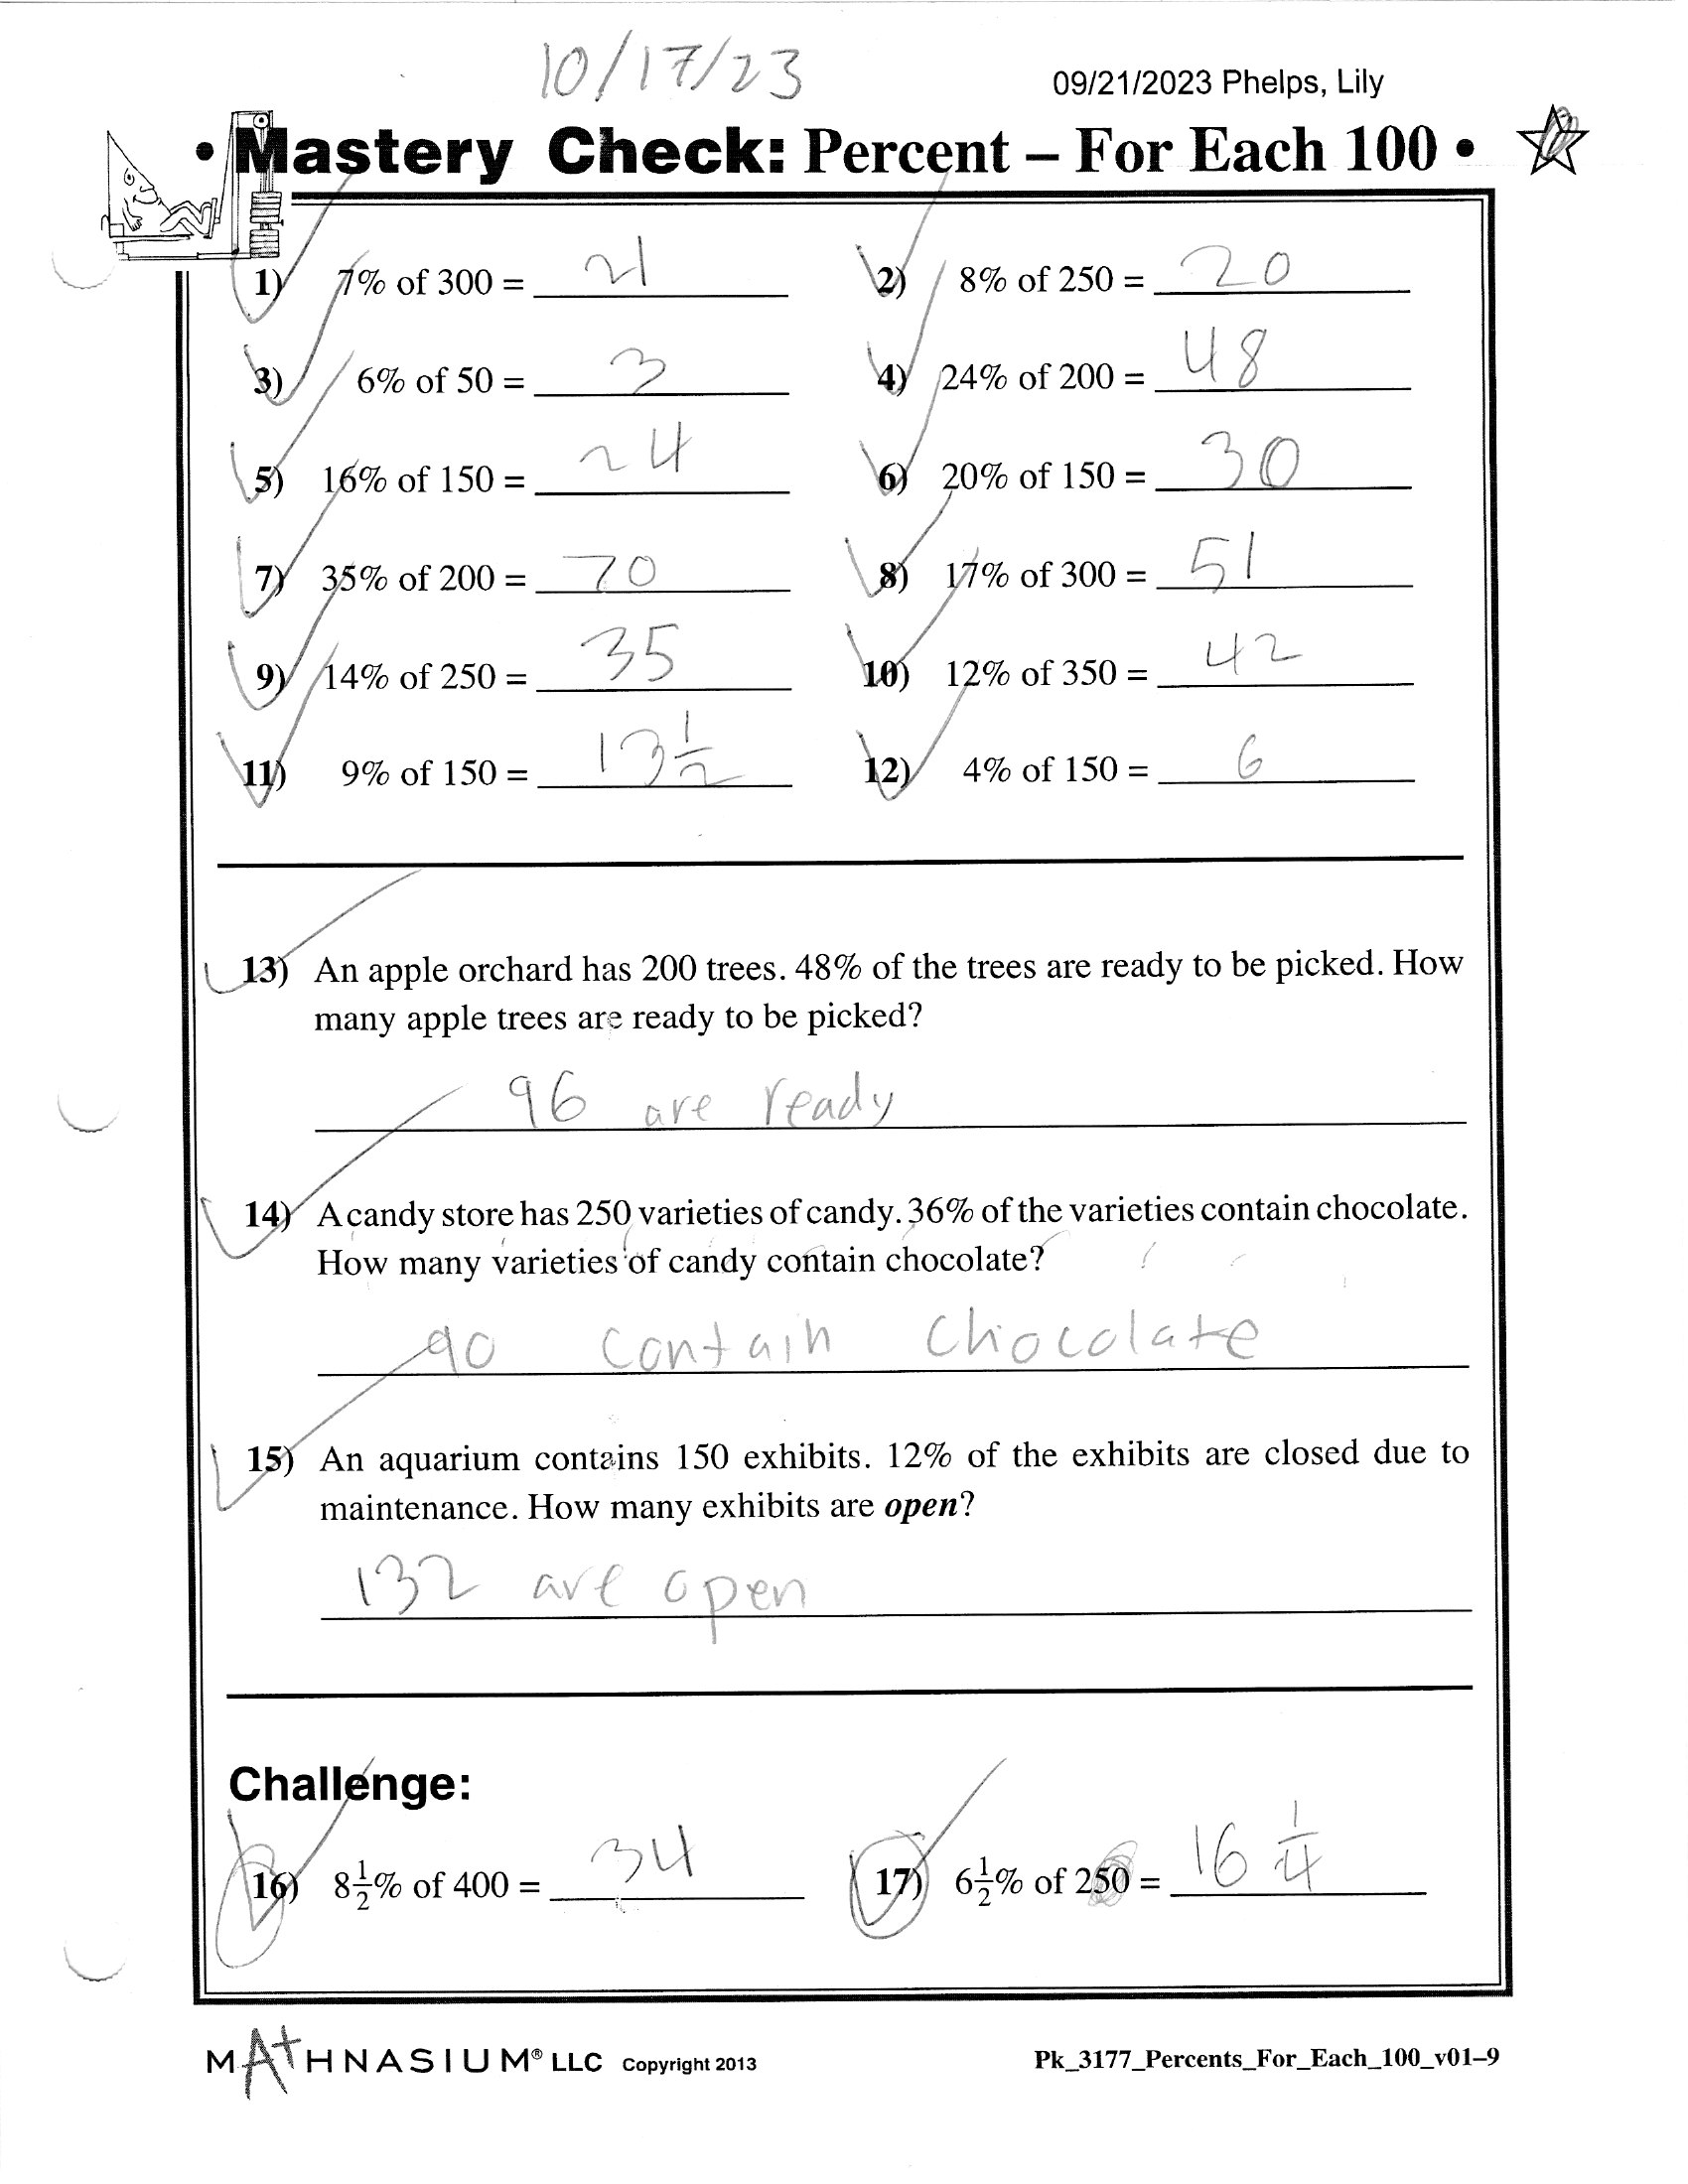 10/17/23
09/21/2023 Phelps, Lily
• Mastery Check: Percent – For Each 100 •
1) 7% of 300 = 21
2) 8% of 250 = 20
3) 6% of 50 = 3
4) 24% of 200 = 48
5) 16% of 150 = 24
6) 20% of 150 = 30
7) 35% of 200 = 70
8) 17% of 300 = 51
9) 14% of 250 = 35
10) 12% of 350 = 42
11) 9% of 150 = 13 1/2
12) 4% of 150 = 6
13) An apple orchard has 200 trees. 48% of the trees are ready to be picked. How
many apple trees are ready to be picked?
96 are ready
14) A candy store has 250 varieties of candy. 36% of the varieties contain chocolate.
How many varieties of candy contain chocolate?
90 contain chocolate
15) An aquarium contains 150 exhibits. 12% of the exhibits are closed due to
maintenance. How many exhibits are open?
132 are open
Challenge:
16) 8 1/2% of 400 = 34
17) 6 1/2% of 250 = 16 1/4
MATHNASIUM® LLC Copyright 2013
Pk_3177_Percents_For_Each_100_v01–9